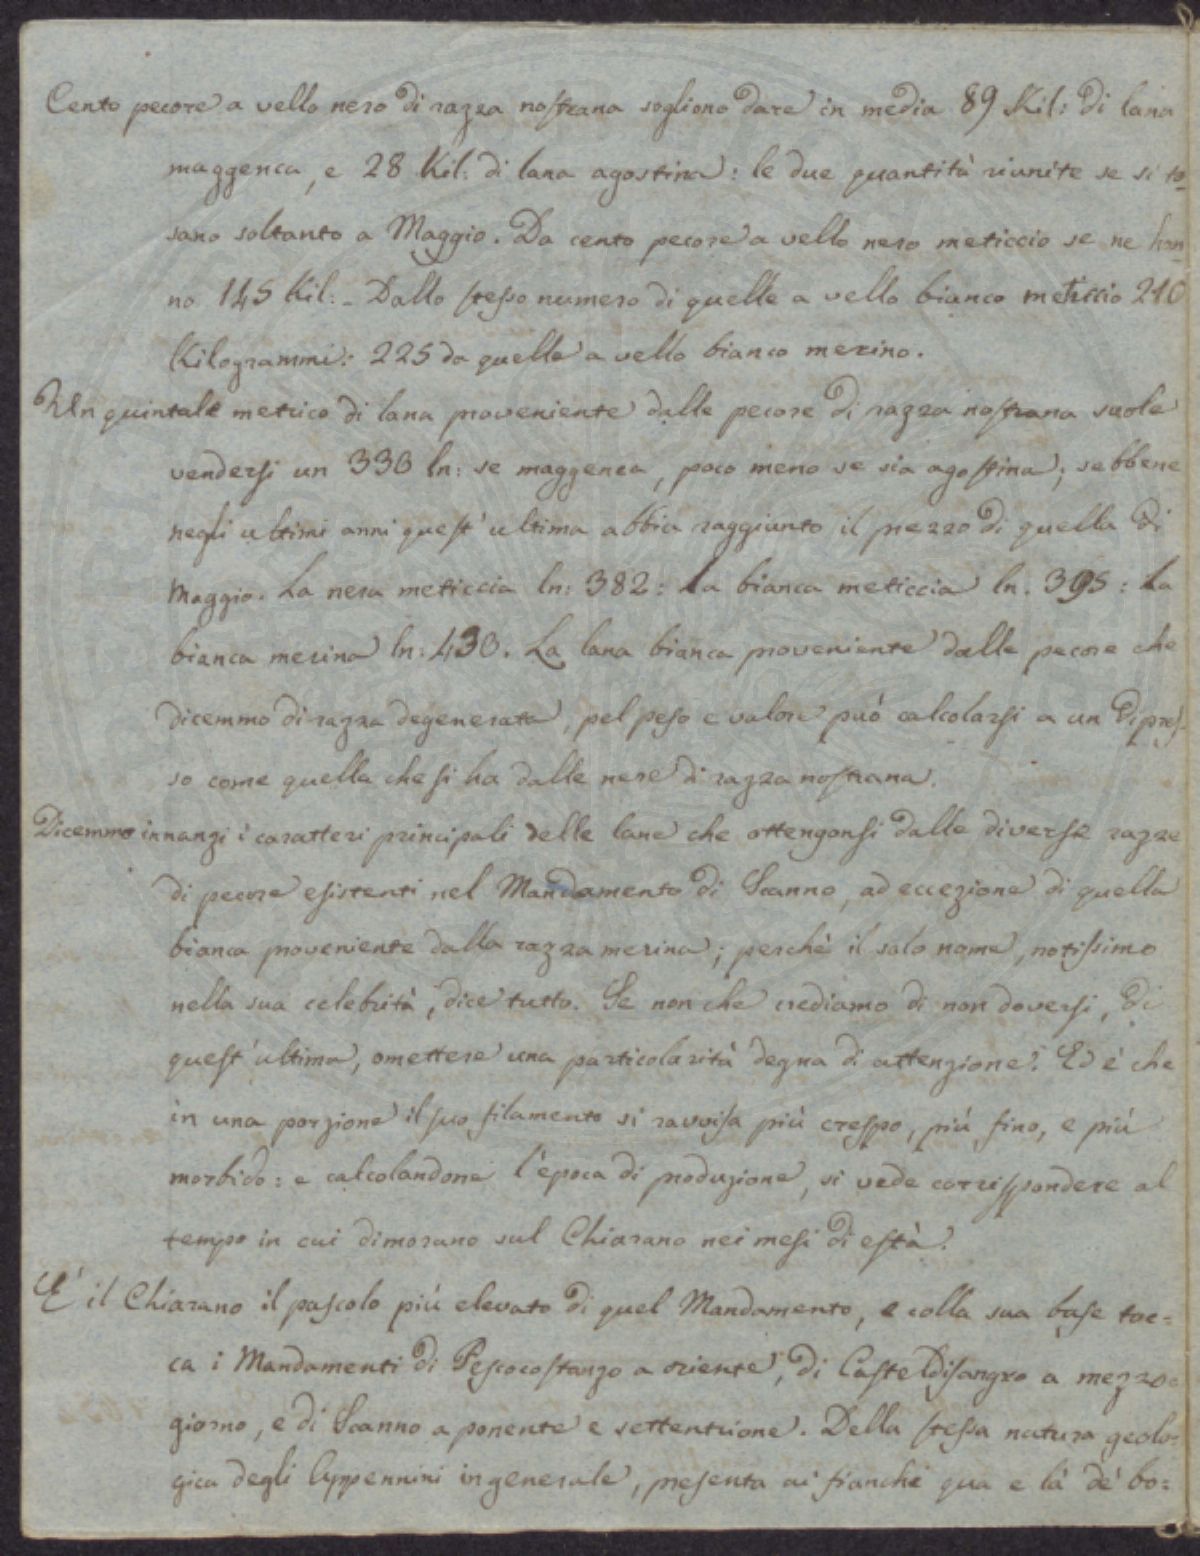 Cento pecore a vello nero di razza nostrana sogliono dare in media 89 Kil: di lana
maggenca, e 28 Kil: di lana agostina: le due quantità riunite se si to-
sano soltanto a Maggio. Da cento pecore a vello nero meticcio se ne han-
no 145 Kil: - Dallo stesso numero di quelle a vello bianco meticcio 210
Kilogrammi: 225 da quelle a vello bianco merino.
Un quintale metrico di lana proveniente dalle pecore di razza nostrana suole
vendersi un 330 ln: se maggenca, poco meno se sia agostina; sebbene
negli ultimi anni quest'ultima abbia raggiunto il prezzo di quella di
Maggio. La nera meticcia ln: 382: La bianca meticcia ln. 395: La
bianca merina ln: 430. La lana bianca proveniente dalle pecore che
dicemmo di razza degenerata, pel peso e valore può calcolarsi a un dipres-
so come quella che si ha dalle nere di razza nostrana.
Dicemmo innanzi i caratteri principali delle lane che ottengonsi dalle diverse razze
di pecore esistenti nel Mandamento di Scanno, ad eccezione di quella
bianca proveniente dalla razza merina; perchè il solo nome, notissimo
nella sua celebrità, dice tutto. Se non che crediamo di non doversi, di
quest'ultima, omettere una particolarità degna di attenzione. Ed è che
in una porzione il suo filamento si ravvisa più crespo, più fino, e più
morbido: e calcolandone l'epoca di produzione, si vede corrispondere al
tempo in cui dimorano sul Chiarano nei mesi di està.
E' il Chiarano il pascolo più elevato di quel Mandamento, e colla sua base toc=
ca i Mandamenti di Pescocostanzo a oriente, di Casteldisangro a mezzo=
giorno, e di Scanno a ponente e settentrione. Della stessa natura geolo=
gica degli Appennini in generale, presenta ai fianchi qua e là de' bo=